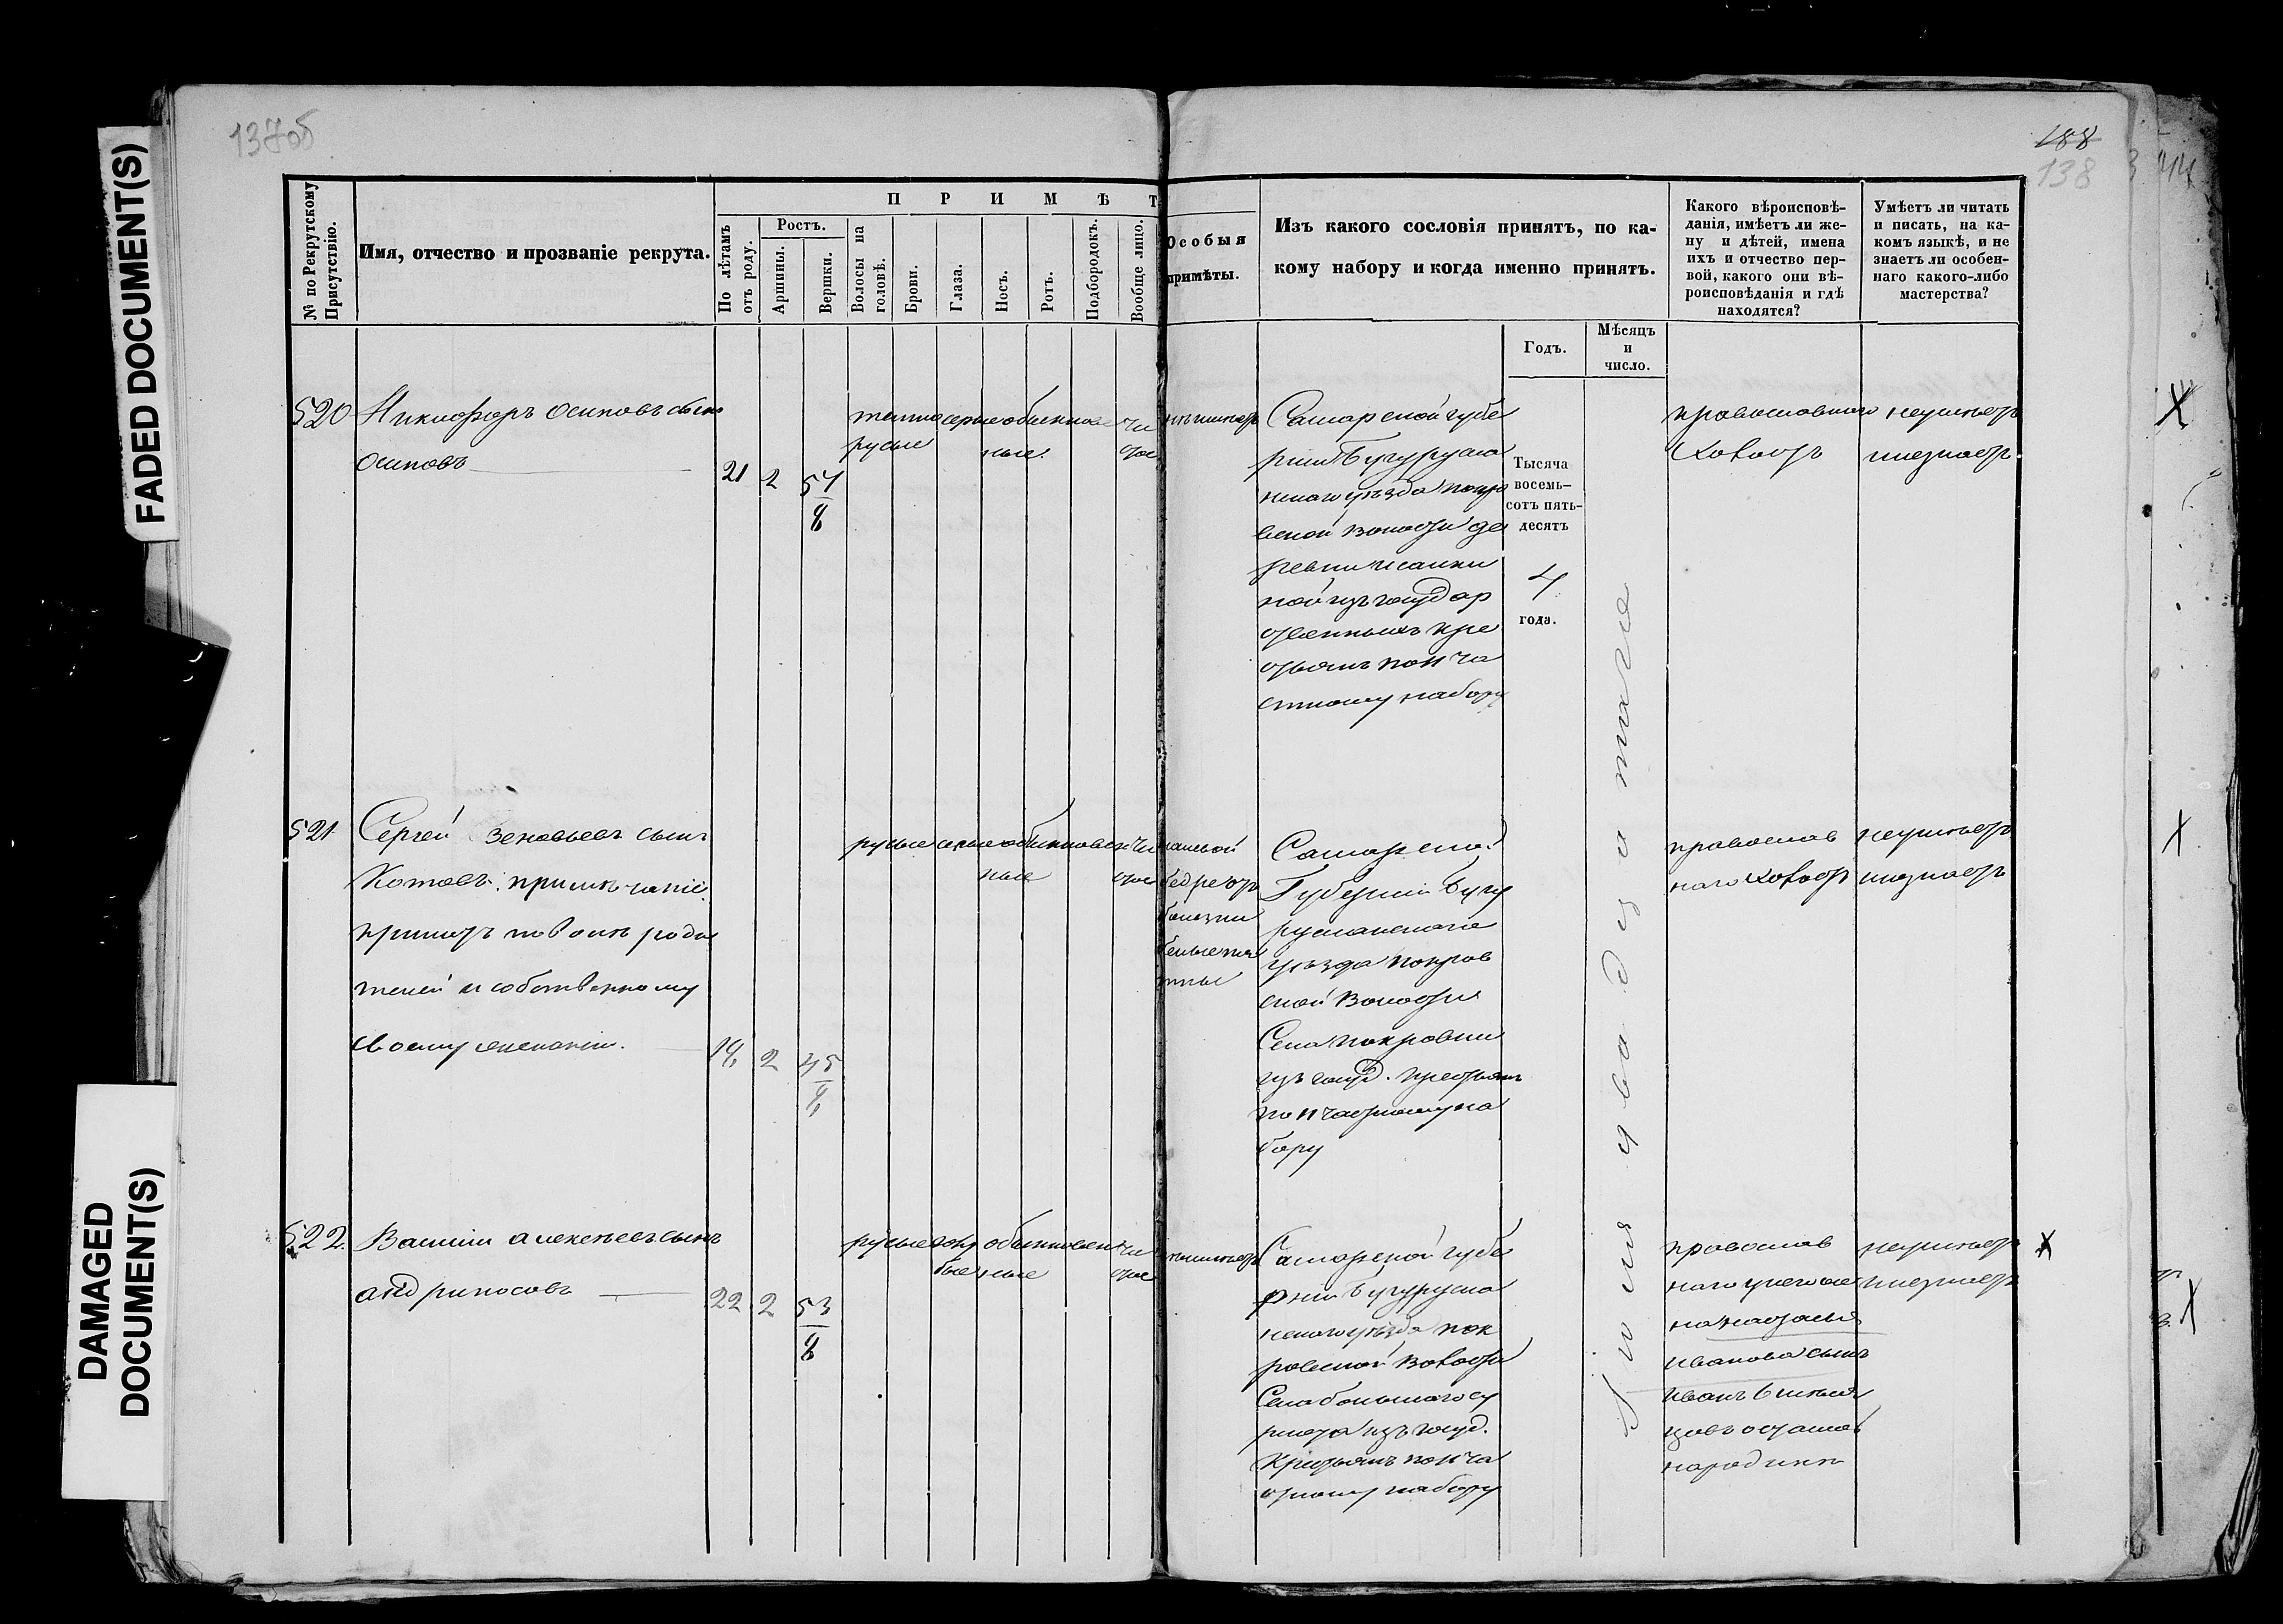 137об
188
138
FADED DOCUMENT(S)
DAMAGED
DOCUMENT(S)
№ по Рекрутскому
Присутствію.
Имя, отчество и прозваніе рекрута.
П Р И М Ѣ Т
По лѣтамъ
отъ роду.
Ростъ.
Аршины.
Вершки.
Волосы на
головѣ.
Брови.
Глаза.
Носъ.
Ротъ.
Подбородокъ.
Вообще лицо.
Особыя
примѣты.
Изъ какого сословія принятъ, по ка-
кому набору и когда именно принятъ.
Какого вѣроисповѣ-
данія, имѣетъ ли же-
ну и дѣтей, имена
ихъ и отчество пер-
вой, какого они вѣ-
роисповѣданія и гдѣ
находятся?
Умѣетъ ли читать
и писать, на ка-
комъ языкѣ, и не
знаетъ ли особен-
наго какого-либо
мастерства?
Годъ.
Мѣсяцъ
и
число.
520
Никифоръ Осиповъ сынъ
Осиповъ
21 2 5 4/8
темно
русые
серые
обыкнов
ные
чи
стое
неимеетъ
Самарской губе
рніи Бугурусла
нскаго уѣзда покро
вской волости де
ревни
ной изъ государ
ственныхъ кре
стьянъ по 11 ча
стному набору
Тысяча
восемь-
сотъ пять-
десятъ
4
года.
православнаго
холостъ
неумѣетъ
и незнаетъ
521
Сергей Зеновьевъ сынъ
Котовъ. примѣчаніе.
принятъ по воли роди
телей и собственному
своему желанію.
19, 2 4 5/8,
русые
серые
обыкновен
ные
чи
стое
на левой
бедре отъ
болезни
белые пя
тны
Самарской
Губерніи Бугу
русланскаго
уѣзда покров
ской волости
Села покровки
изъ госуд. крестьянъ
по 11 частному на
бору
православ
наго холостъ
неумѣетъ
и незнаетъ
522.
Василий алексеевъ сынъ
андриносовъ
22 2 5 3/8
русые
голу
бые
обыкновен
ные
чи
стое
неимеетъ
Самарской губе
рніи Бугурусла
нскаго уѣзда пок
ровской волости
Села большаго су
рмета изъ госуд.
Крестьянъ по 11 ча
стному набору
Іюня двадцатаго
православ
наго у него же
на настасья
Иванова сынъ
Иванъ 6 месяц
цовъ осталась
народине
неумѣетъ
и незнаетъ